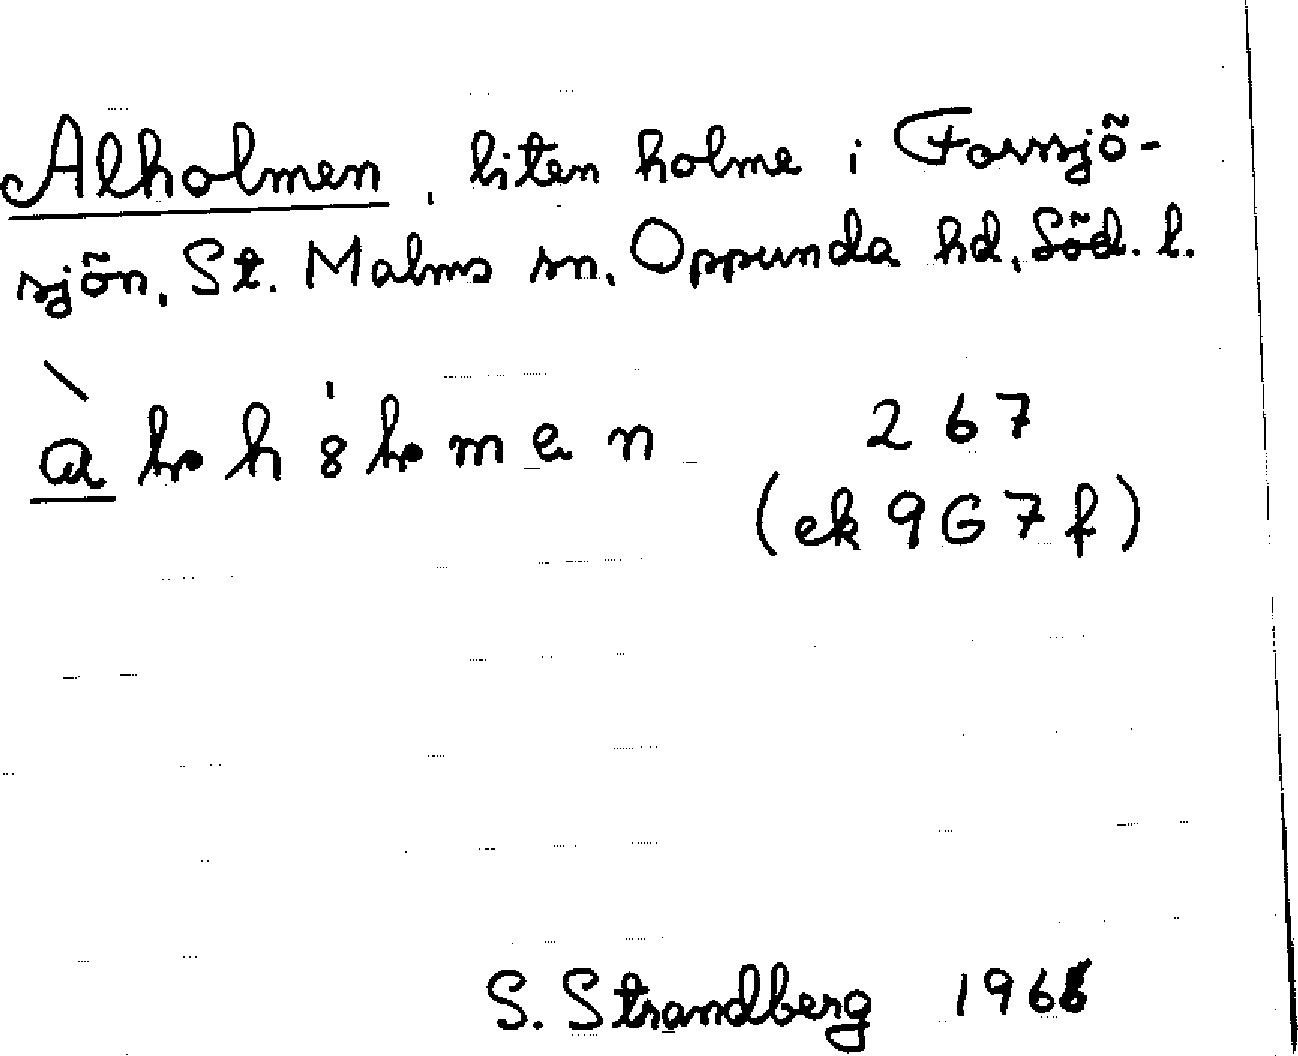 Alholmen, liten holme i Forssjö-
sjön, St. Malms sn, Oppunda hd, Söd. l.
267
(ek 9G7f)
S. Strandberg